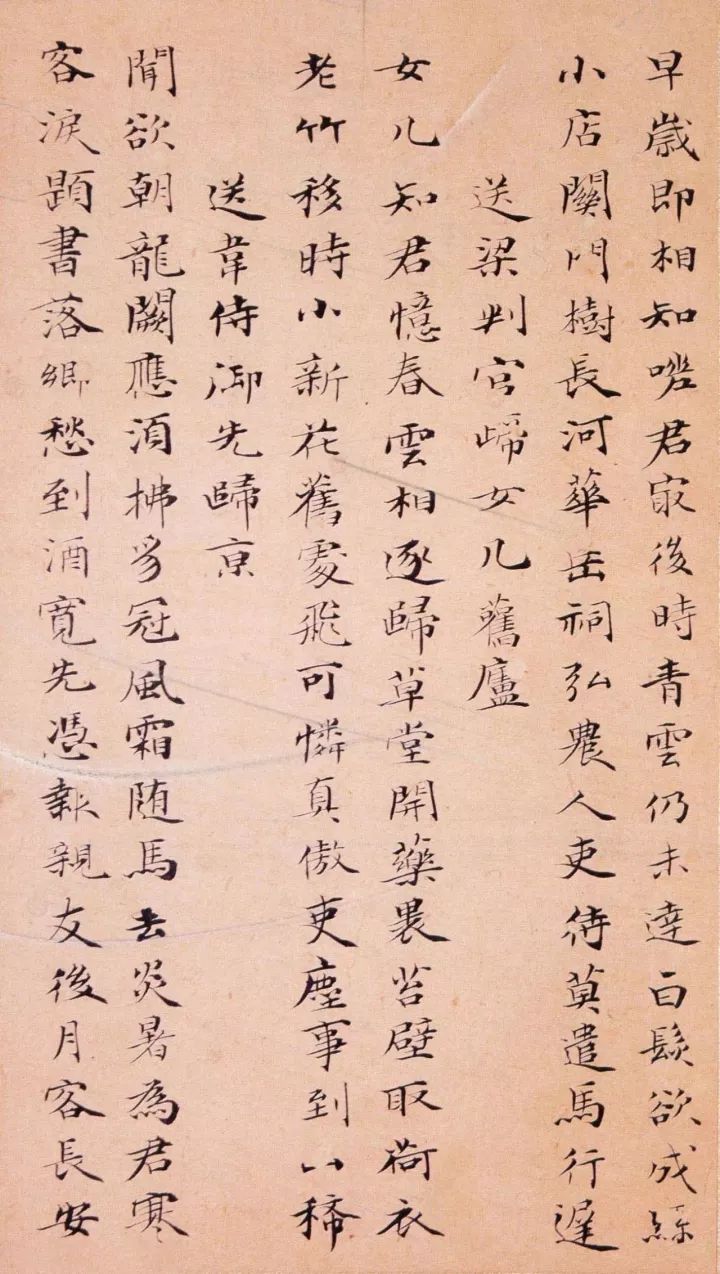 早歲即相知嗟君冣後時青雲仍未達白髮欲成絲
小店關門樹長河華岳祠弘農人吏待莫遣馬行遲
送梁判官歸女几舊廬
女几知君憶春雲相逐歸草堂開藥裹苔壁取荷衣
老竹移時小新花舊處飛可憐真傲吏塵事到山稀
送韋侍御先歸京
聞欲朝龍闕應須拂豸冠風霜随馬去炎暑為君寒
客淚題書落鄉愁到酒寬先憑報親友後月客長安